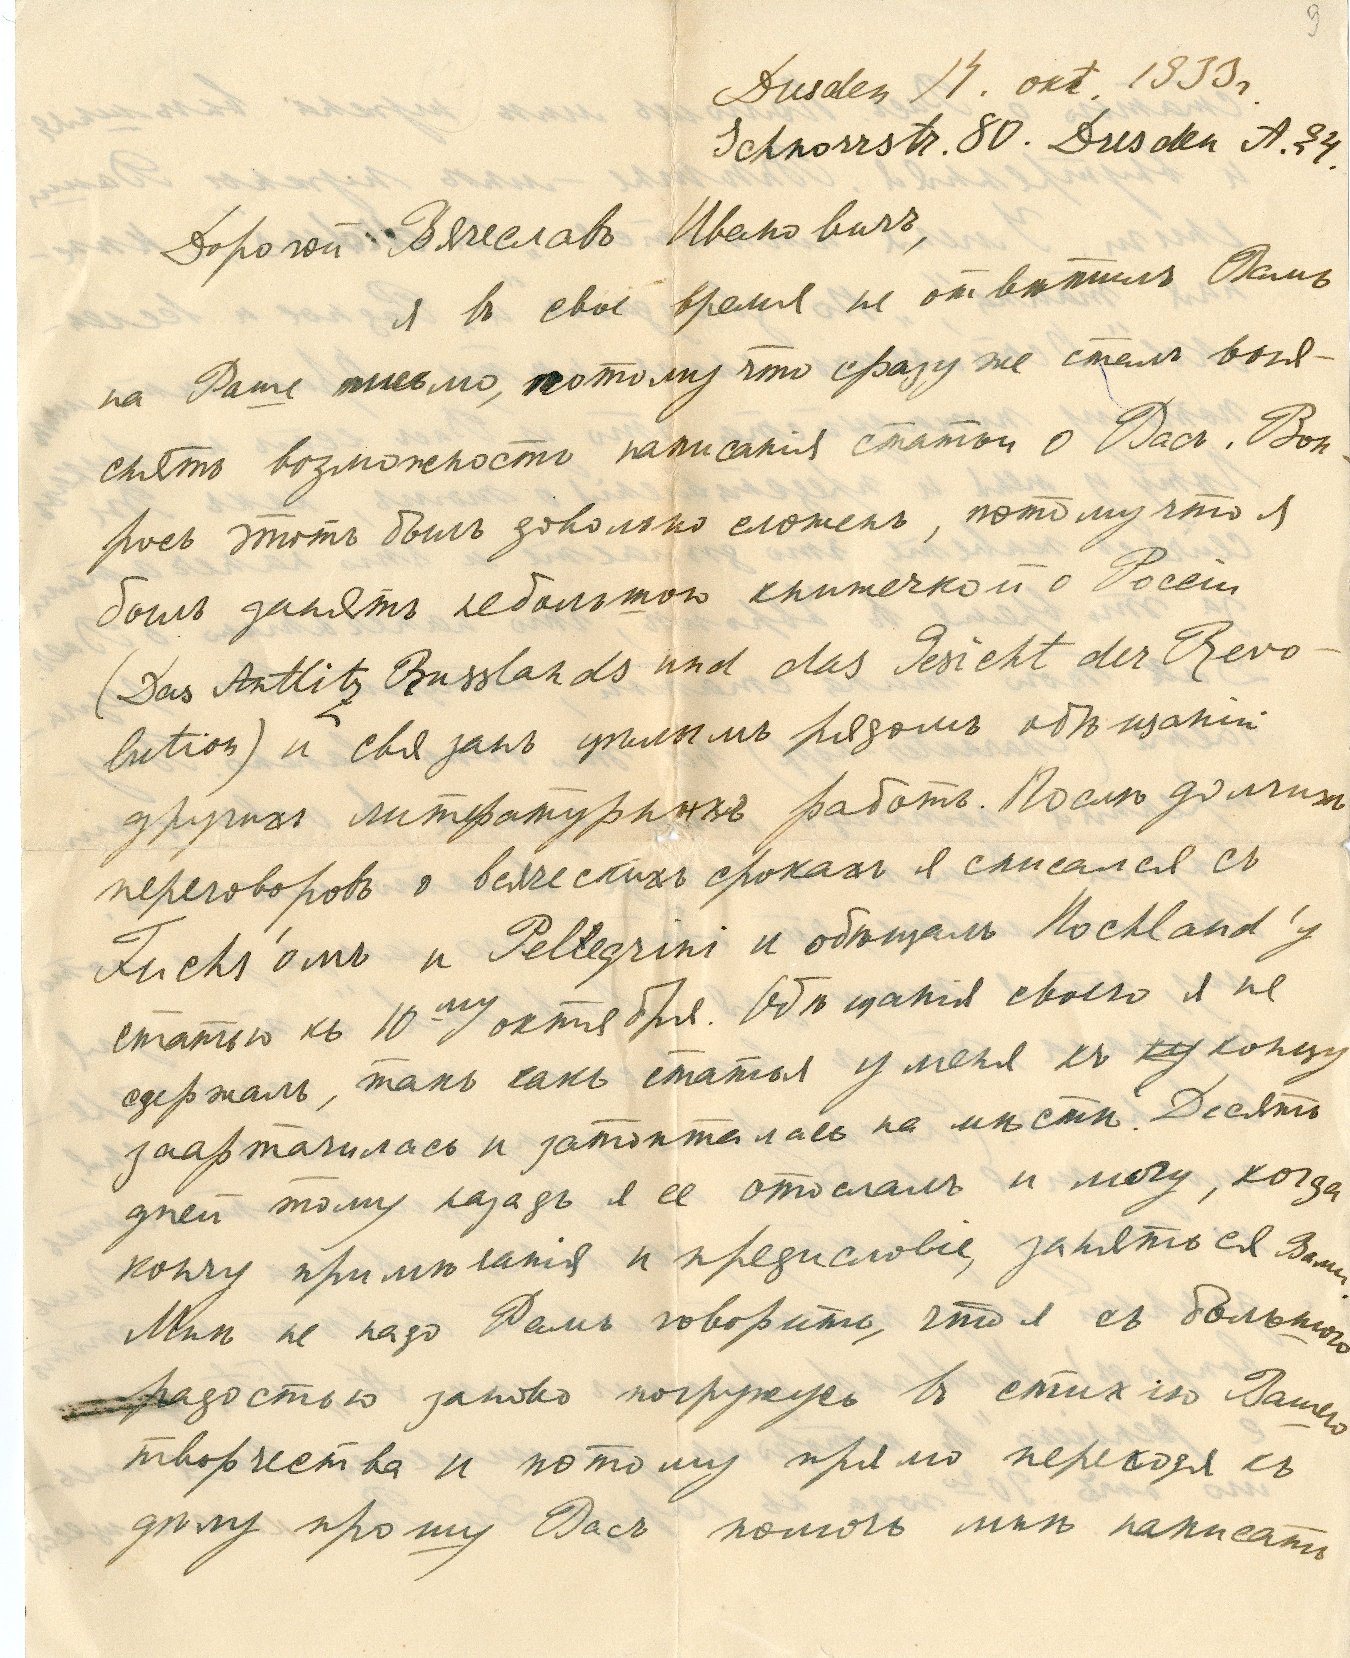 9
Dresden 14. окт. 1933 г.
Schnorrstr. 80. Dresden A. 24.
Дорогой Вячеславъ Ивановичъ,
я въ свое время не отвѣтилъ Вамъ
на Ваше письмо, потому что сразу же сталъ выя-
снять возможность написанія статьи о Васъ. Воп-
росъ этотъ былъ довольно сложенъ, потому что я
былъ занятъ небольшою книжечкой о Россіи
(Das Antlitz Russlands und das Gesicht der Revo-
lution) и связанъ цѣлымъ рядомъ обѣщаній
другихъ литературныхъ работъ. Послѣ долгихъ
переговоровъ о всяческихъ срокахъ я списался съ
Fuchs'омъ и Pellegrini и обѣщалъ Hochland'у
статью къ 10му октября. Обѣщанія своего я не
сдержалъ, такъ какъ статья у меня къ концу
заартачилась и затопталась на мѣстѣ. Десять
дней тому назадъ я ее отослалъ и могу, когда
кончу примѣчанія и предисловіе, заняться Вами.
Мнѣ не надо Вамъ говорить, что я съ большою
радостью заново погружусь въ стихію Вашего
творчества и потому прямо переходя къ
дѣлу прошу Васъ помочь мнѣ написать